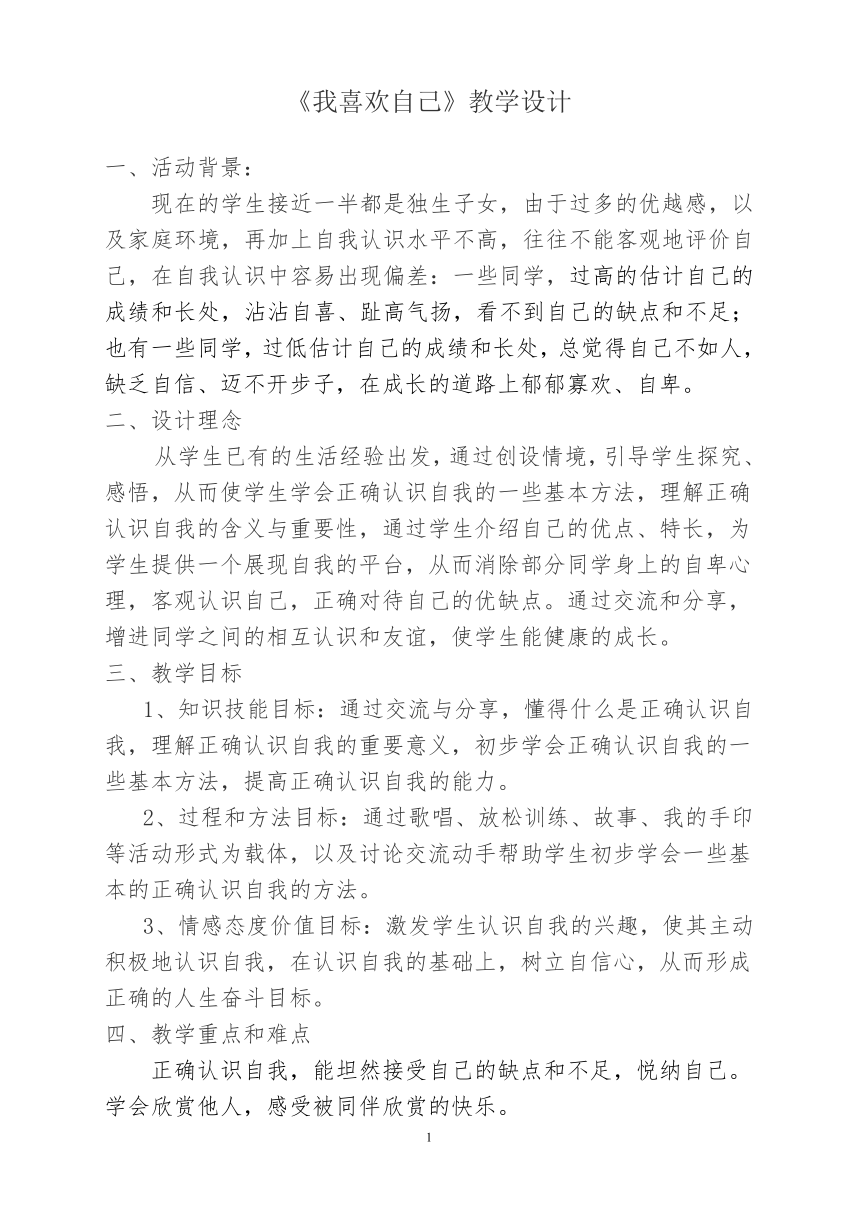 《我喜欢自己》教学设计
一、活动背景：
现在的学生接近一半都是独生子女，由于过多的优越感，以
及家庭环境，再加上自我认识水平不高，往往不能客观地评价自
己，在自我认识中容易出现偏差：一些同学，过高的估计自己的
成绩和长处，沾沾自喜、趾高气扬，看不到自己的缺点和不足；
也有一些同学，过低估计自己的成绩和长处，总觉得自己不如人，
缺乏自信、迈不开步子，在成长的道路上郁郁寡欢、自卑。
二、设计理念
从学生已有的生活经验出发，通过创设情境，引导学生探究、
感悟，从而使学生学会正确认识自我的一些基本方法，理解正确
认识自我的含义与重要性，通过学生介绍自己的优点、特长，为
学生提供一个展现自我的平台，从而消除部分同学身上的自卑心
理，客观认识自己，正确对待自己的优缺点。通过交流和分享，
增进同学之间的相互认识和友谊，使学生能健康的成长。
三、教学目标
1、知识技能目标：通过交流与分享，懂得什么是正确认识自
我，理解正确认识自我的重要意义，初步学会正确认识自我的一
些基本方法，提高正确认识自我的能力。
2、过程和方法目标：通过歌唱、放松训练、故事、我的手印
等活动形式为载体，以及讨论交流动手帮助学生初步学会一些基
本的正确认识自我的方法。
3、情感态度价值目标：激发学生认识自我的兴趣，使其主动
积极地认识自我，在认识自我的基础上，树立自信心，从而形成
正确的人生奋斗目标。
四、教学重点和难点
正确认识自我，能坦然接受自己的缺点和不足，悦纳自己。
学会欣赏他人，感受被同伴欣赏的快乐。
1